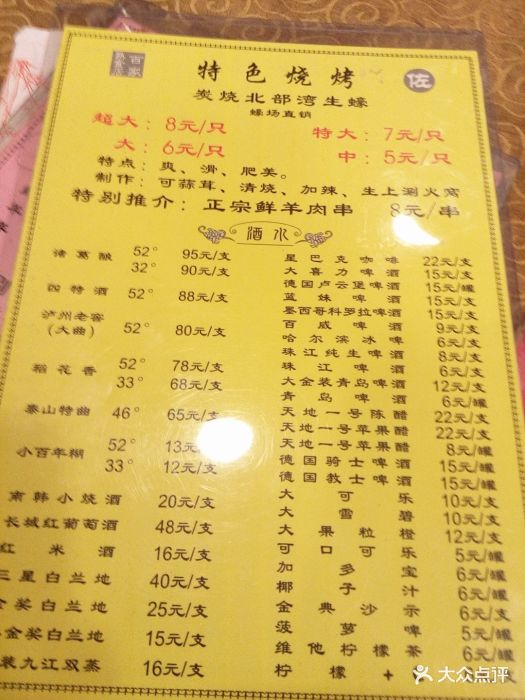 百家
特色烧烤
佐
炭烧北部湾生蠔
蠔场直销
超大：8元/只 特大：7元/只
大：6元/只 中：5元/只
特点：爽、滑、肥美。
制作：可蒜茸、清烧、加辣、生上涮火窝
特别推介：正宗鲜羊肉串 8元/串
酒水
诸葛酿 52° 95元/支
32° 90元/支
四特酒 52° 88元/支
泸州老窖
(大曲) 52° 80元/支
稻花香 52° 78元/支
33° 68元/支
泰山特曲 46° 65元/支
小百年糊 52° 13元/支
33° 12元/支
南韩小烧酒 20元/支
长城红葡萄酒 48元/支
红米酒 16元/支
三星白兰地 40元/支
金奖白兰地 25元/支
金奖白兰地 15元/支
装九江双蒸 16元/支
星巴克咖啡 22元/支
大喜力啤酒 15元/支
德国卢云堡啤酒 15元/罐
蓝妹啤酒 15元/支
墨西哥科罗拉啤酒 15元/支
百威啤酒 9元/支
哈尔滨冰啤 6元/支
珠江纯生啤酒 8元/支
珠江啤酒 6元/支
大金装青岛啤酒 12元/支
青岛啤酒 6元/罐
天地一号陈醋 22元/支
天地一号苹果醋 22元/支
天地一号苹果醋 8元/罐
德国骑士啤酒 15元/罐
德国教士啤酒 15元/罐
大可乐 10元/支
大雪碧 10元/支
大果粒橙 12元/支
可口可乐 5元/罐
加多宝 6元/罐
椰子汁 6元/罐
金典沙示 6元/罐
菠萝啤 5元/罐
维他柠檬茶 6元/支
柠檬+
大众点评